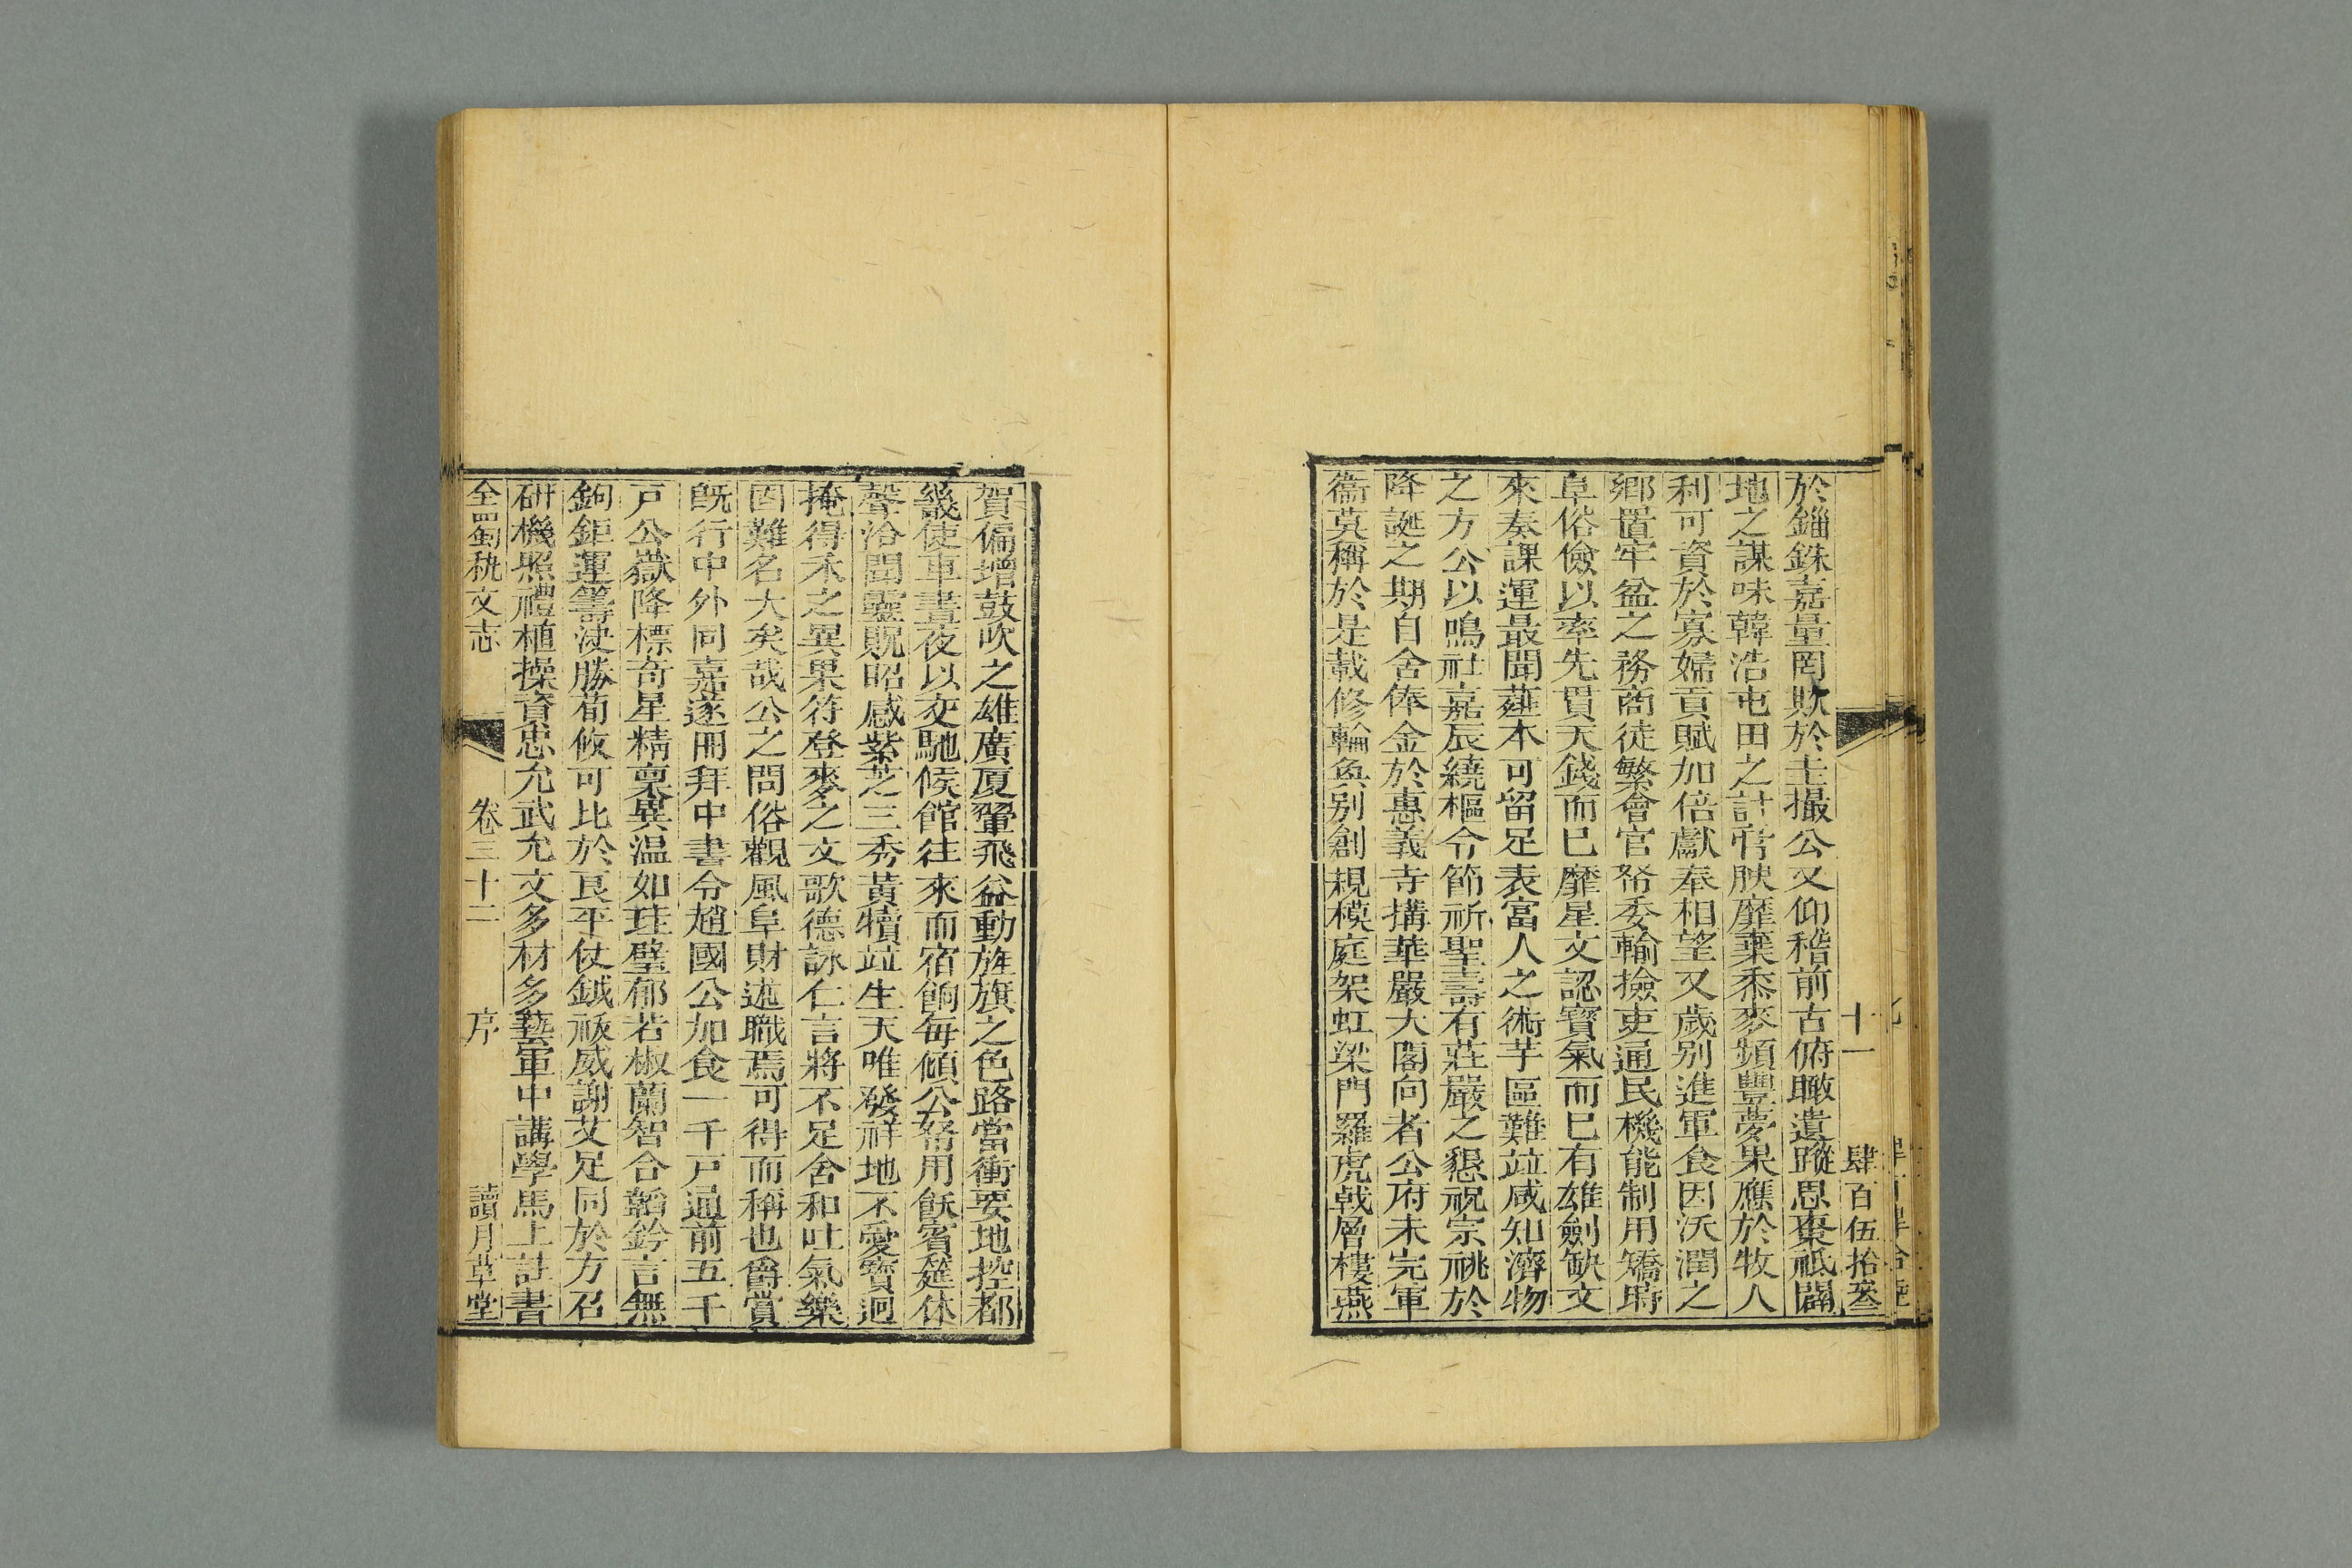 十一 肆百伍拾叄
於錙銖嘉量罔欺於圭撮公又仰稽前古俯瞰遺蹤思棗祗闢
地之謀味韓浩屯田之計管腴靡棄黍麥頻豐夢果應於牧人
利可資於寡婦貢賦加倍獻奉相望又歲别進軍食因沃潤之
鄉置牢盆之務商徒繁會官帑委輸撿吏通民機能制用矯時
阜俗儉以率先貫天錢而已靡星文認寶氣而已有雄劍缺文
來奏課運最聞薤本可留足表富人之術芋區難竝咸知濟物
之方公以鳴社嘉辰繞樞令節祈聖壽有莊嚴之懇祝宗祧於
降誕之期自舍俸金於惠義寺搆華嚴大閣向者公府未完軍
衞莫稱於是載修輪奐别創規模庭架虹梁門羅虎戟層樓燕
賀偏增鼓吹之雄廣厦翬飛益動旌旗之色路當衝要地控都
畿使車晝夜以交馳候館往來而宿餉每傾公帑用飫賓筵休
聲洽聞靈貺昭感紫芝三秀黃犢竝生天唯發祥地不愛寶迥
掩得禾之異果符登麥之文歌德詠仁言將不足舍和吐氣樂
固難名大矣哉公之問俗觀風阜財述職焉可得而稱也爵賞
旣行中外同嘉遂冊拜中書令趙國公加食一千戸通前五千
戸公嶽降標奇星精稟異温如珪璧郁若椒蘭智合韜鈐言無
鉤鉅運籌決勝荀攸可比於良平仗鉞䄂威謝艾足同於方召
研機照禮植操資忠允武允文多材多藝軍中講學馬上計書
全蜀秇文志 卷三十二 序 讀月草堂